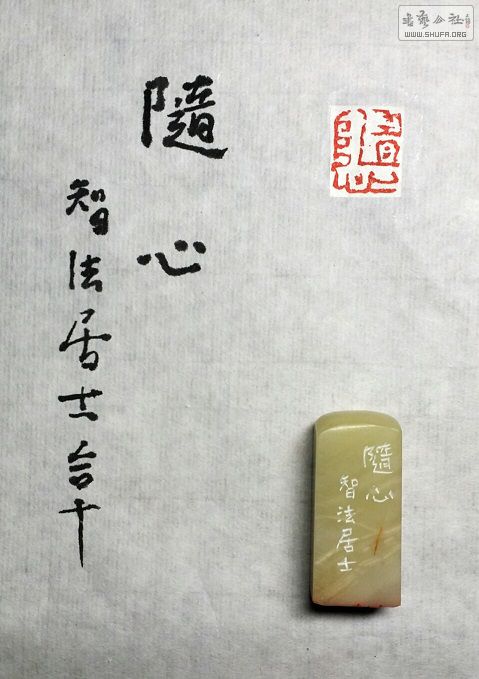 書藝公社
WWW.SHUFA.ORG
隨心
隨心
智法居士合十
隨心
智法居士